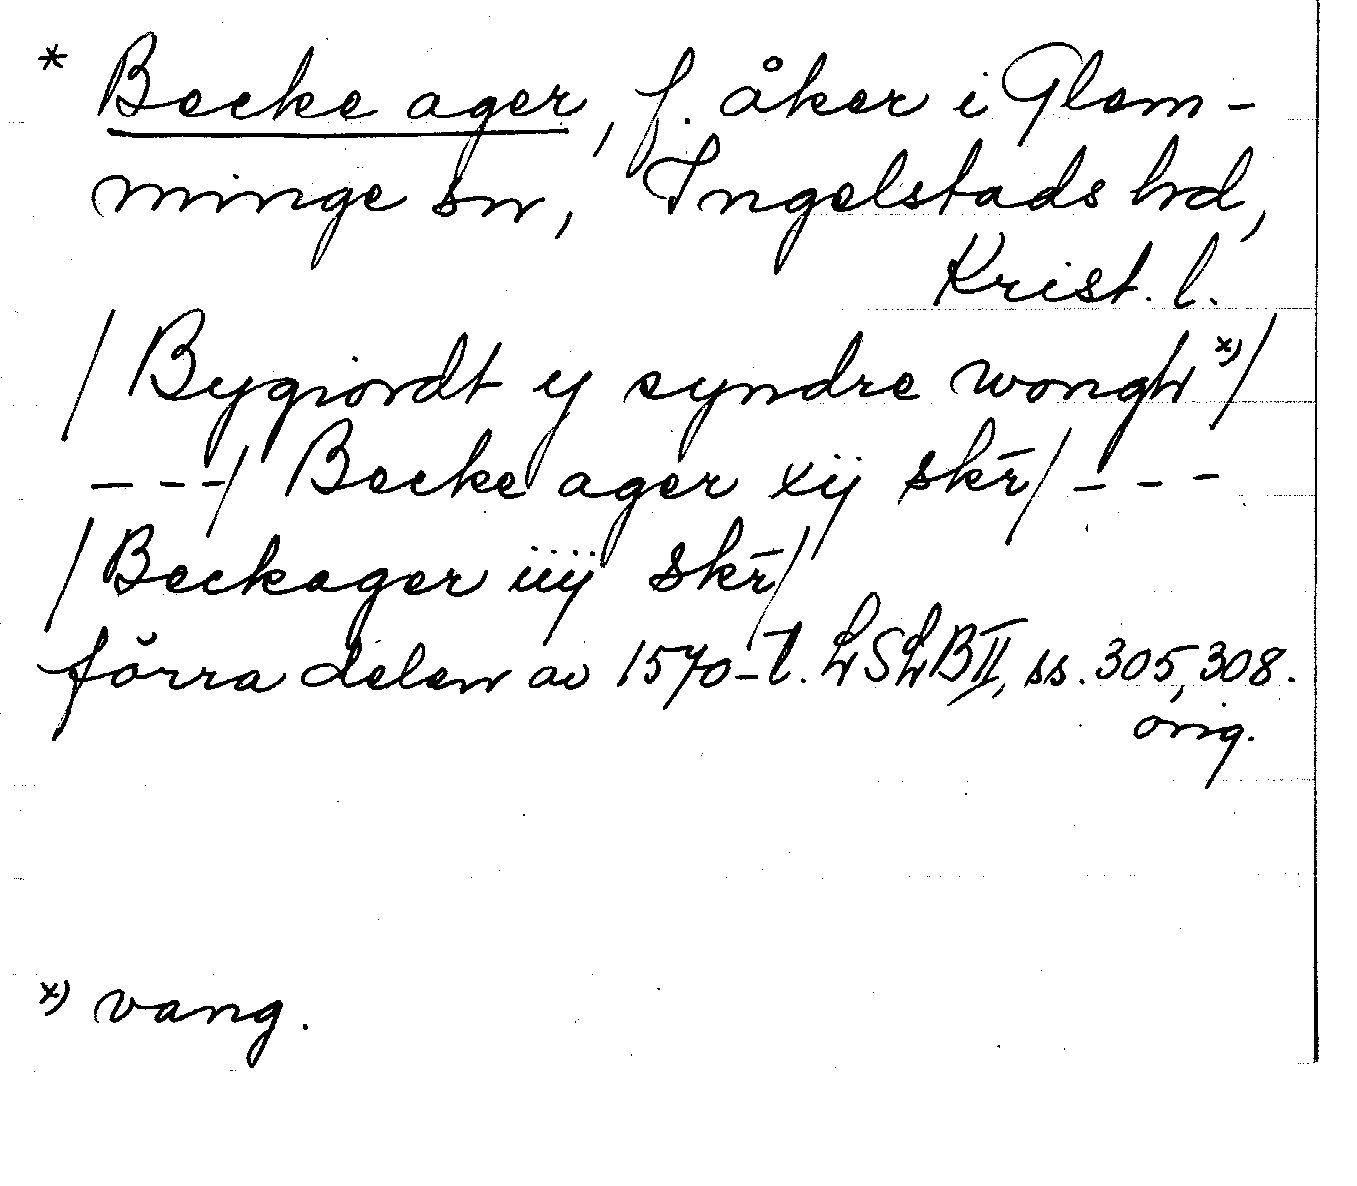 * Becke ager, f. åker i Glem-
minge sn, Ingelstads hd,
Krist. l.
/ Bygiordt y syndre wongh x)/
---/ Becke ager xij skr̄/ ---
/ Beckager iiij skr̄/
förra delen av 1570-t. LSLB II, ss. 305, 308.
orig.
x) vang.